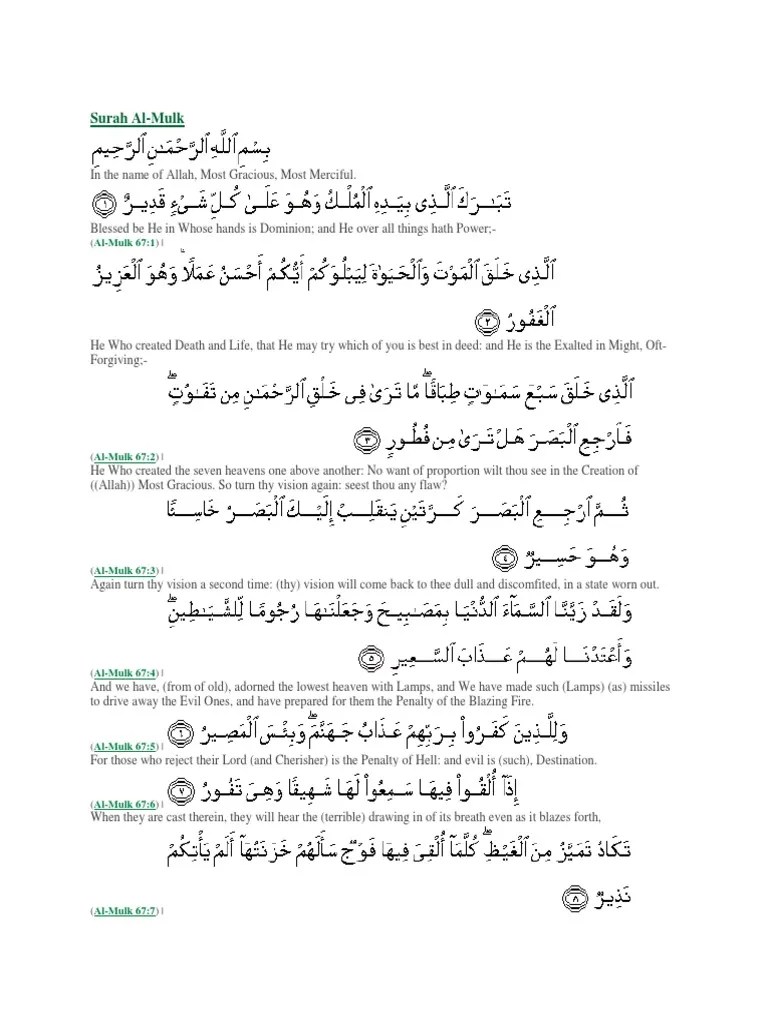 Surah Al-Mulk
بِسْمِ ٱللَّهِ ٱلرَّحْمَـٰنِ ٱلرَّحِيمِ
In the name of Allah, Most Gracious, Most Merciful.
تَبَـٰرَكَ ٱلَّذِى بِيَدِهِ ٱلْمُلْكُ وَهُوَ عَلَىٰ كُلِّ شَىْءٍ قَدِيرٌ ١
Blessed be He in Whose hands is Dominion; and He over all things hath Power;-
(Al-Mulk 67:1) |
ٱلَّذِى خَلَقَ ٱلْمَوْتَ وَٱلْحَيَوٰةَ لِيَبْلُوَكُمْ أَيُّكُمْ أَحْسَنُ عَمَلًا ۚ وَهُوَ ٱلْعَزِيزُ
ٱلْغَفُورُ ٢
He Who created Death and Life, that He may try which of you is best in deed: and He is the Exalted in Might, Oft-
Forgiving;-
ٱلَّذِى خَلَقَ سَبْعَ سَمَـٰوَٰتٍ طِبَاقًا ۖ مَّا تَرَىٰ فِى خَلْقِ ٱلرَّحْمَـٰنِ مِن تَفَـٰوُتٍ ۖ
فَٱرْجِعِ ٱلْبَصَرَ هَلْ تَرَىٰ مِن فُطُورٍ ٣
(Al-Mulk 67:2) |
He Who created the seven heavens one above another: No want of proportion wilt thou see in the Creation of
((Allah)) Most Gracious. So turn thy vision again: seest thou any flaw?
ثُمَّ ٱرْجِعِ ٱلْبَصَرَ كَرَّتَيْنِ يَنقَلِبْ إِلَيْكَ ٱلْبَصَرُ خَاسِئًا
وَهُوَ حَسِيرٌ ٤
(Al-Mulk 67:3) |
Again turn thy vision a second time: (thy) vision will come back to thee dull and discomfited, in a state worn out.
وَلَقَدْ زَيَّنَّا ٱلسَّمَآءَ ٱلدُّنْيَا بِمَصَـٰبِيحَ وَجَعَلْنَـٰهَا رُجُومًا لِّلشَّيَـٰطِينِ ۖ
وَأَعْتَدْنَا لَهُمْ عَذَابَ ٱلسَّعِيرِ ٥
(Al-Mulk 67:4) |
And we have, (from of old), adorned the lowest heaven with Lamps, and We have made such (Lamps) (as) missiles
to drive away the Evil Ones, and have prepared for them the Penalty of the Blazing Fire.
وَلِلَّذِينَ كَفَرُوا۟ بِرَبِّهِمْ عَذَابُ جَهَنَّمَ ۖ وَبِئْسَ ٱلْمَصِيرُ ٦
(Al-Mulk 67:5) |
For those who reject their Lord (and Cherisher) is the Penalty of Hell: and evil is (such), Destination.
إِذَآ أُلْقُوا۟ فِيهَا سَمِعُوا۟ لَهَا شَهِيقًا وَهِىَ تَفُورُ ٧
(Al-Mulk 67:6) |
When they are cast therein, they will hear the (terrible) drawing in of its breath even as it blazes forth,
تَكَادُ تَمَيَّزُ مِنَ ٱلْغَيْظِ ۖ كُلَّمَآ أُلْقِىَ فِيهَا فَوْجٌ سَأَلَهُمْ خَزَنَتُهَآ أَلَمْ يَأْتِكُمْ
نَذِيرٌ ٨
(Al-Mulk 67:7) |